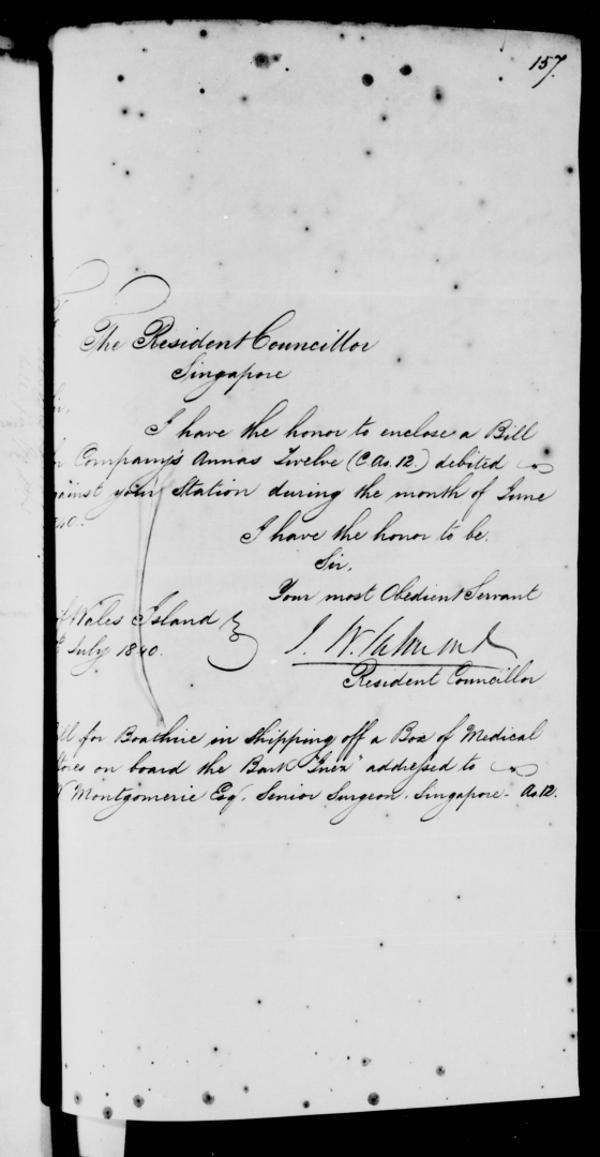 157.
The Resident Councillor
Singapore
Sir,
I have the honor to enclose a Bill
Company's Annas Twelve (C. As. 12.) debited
against your Station during the month of June
I have the honor to be,
Sir,
Your most Obedient Servant
Wales Island
July 1840.
Resident Councillor
Bill for Boathire in shipping off a Box of Medical
Stores on board the Bark "Inez" addressed to
W Montgomerie Esqr. Senior Surgeon. Singapore - As. 12.